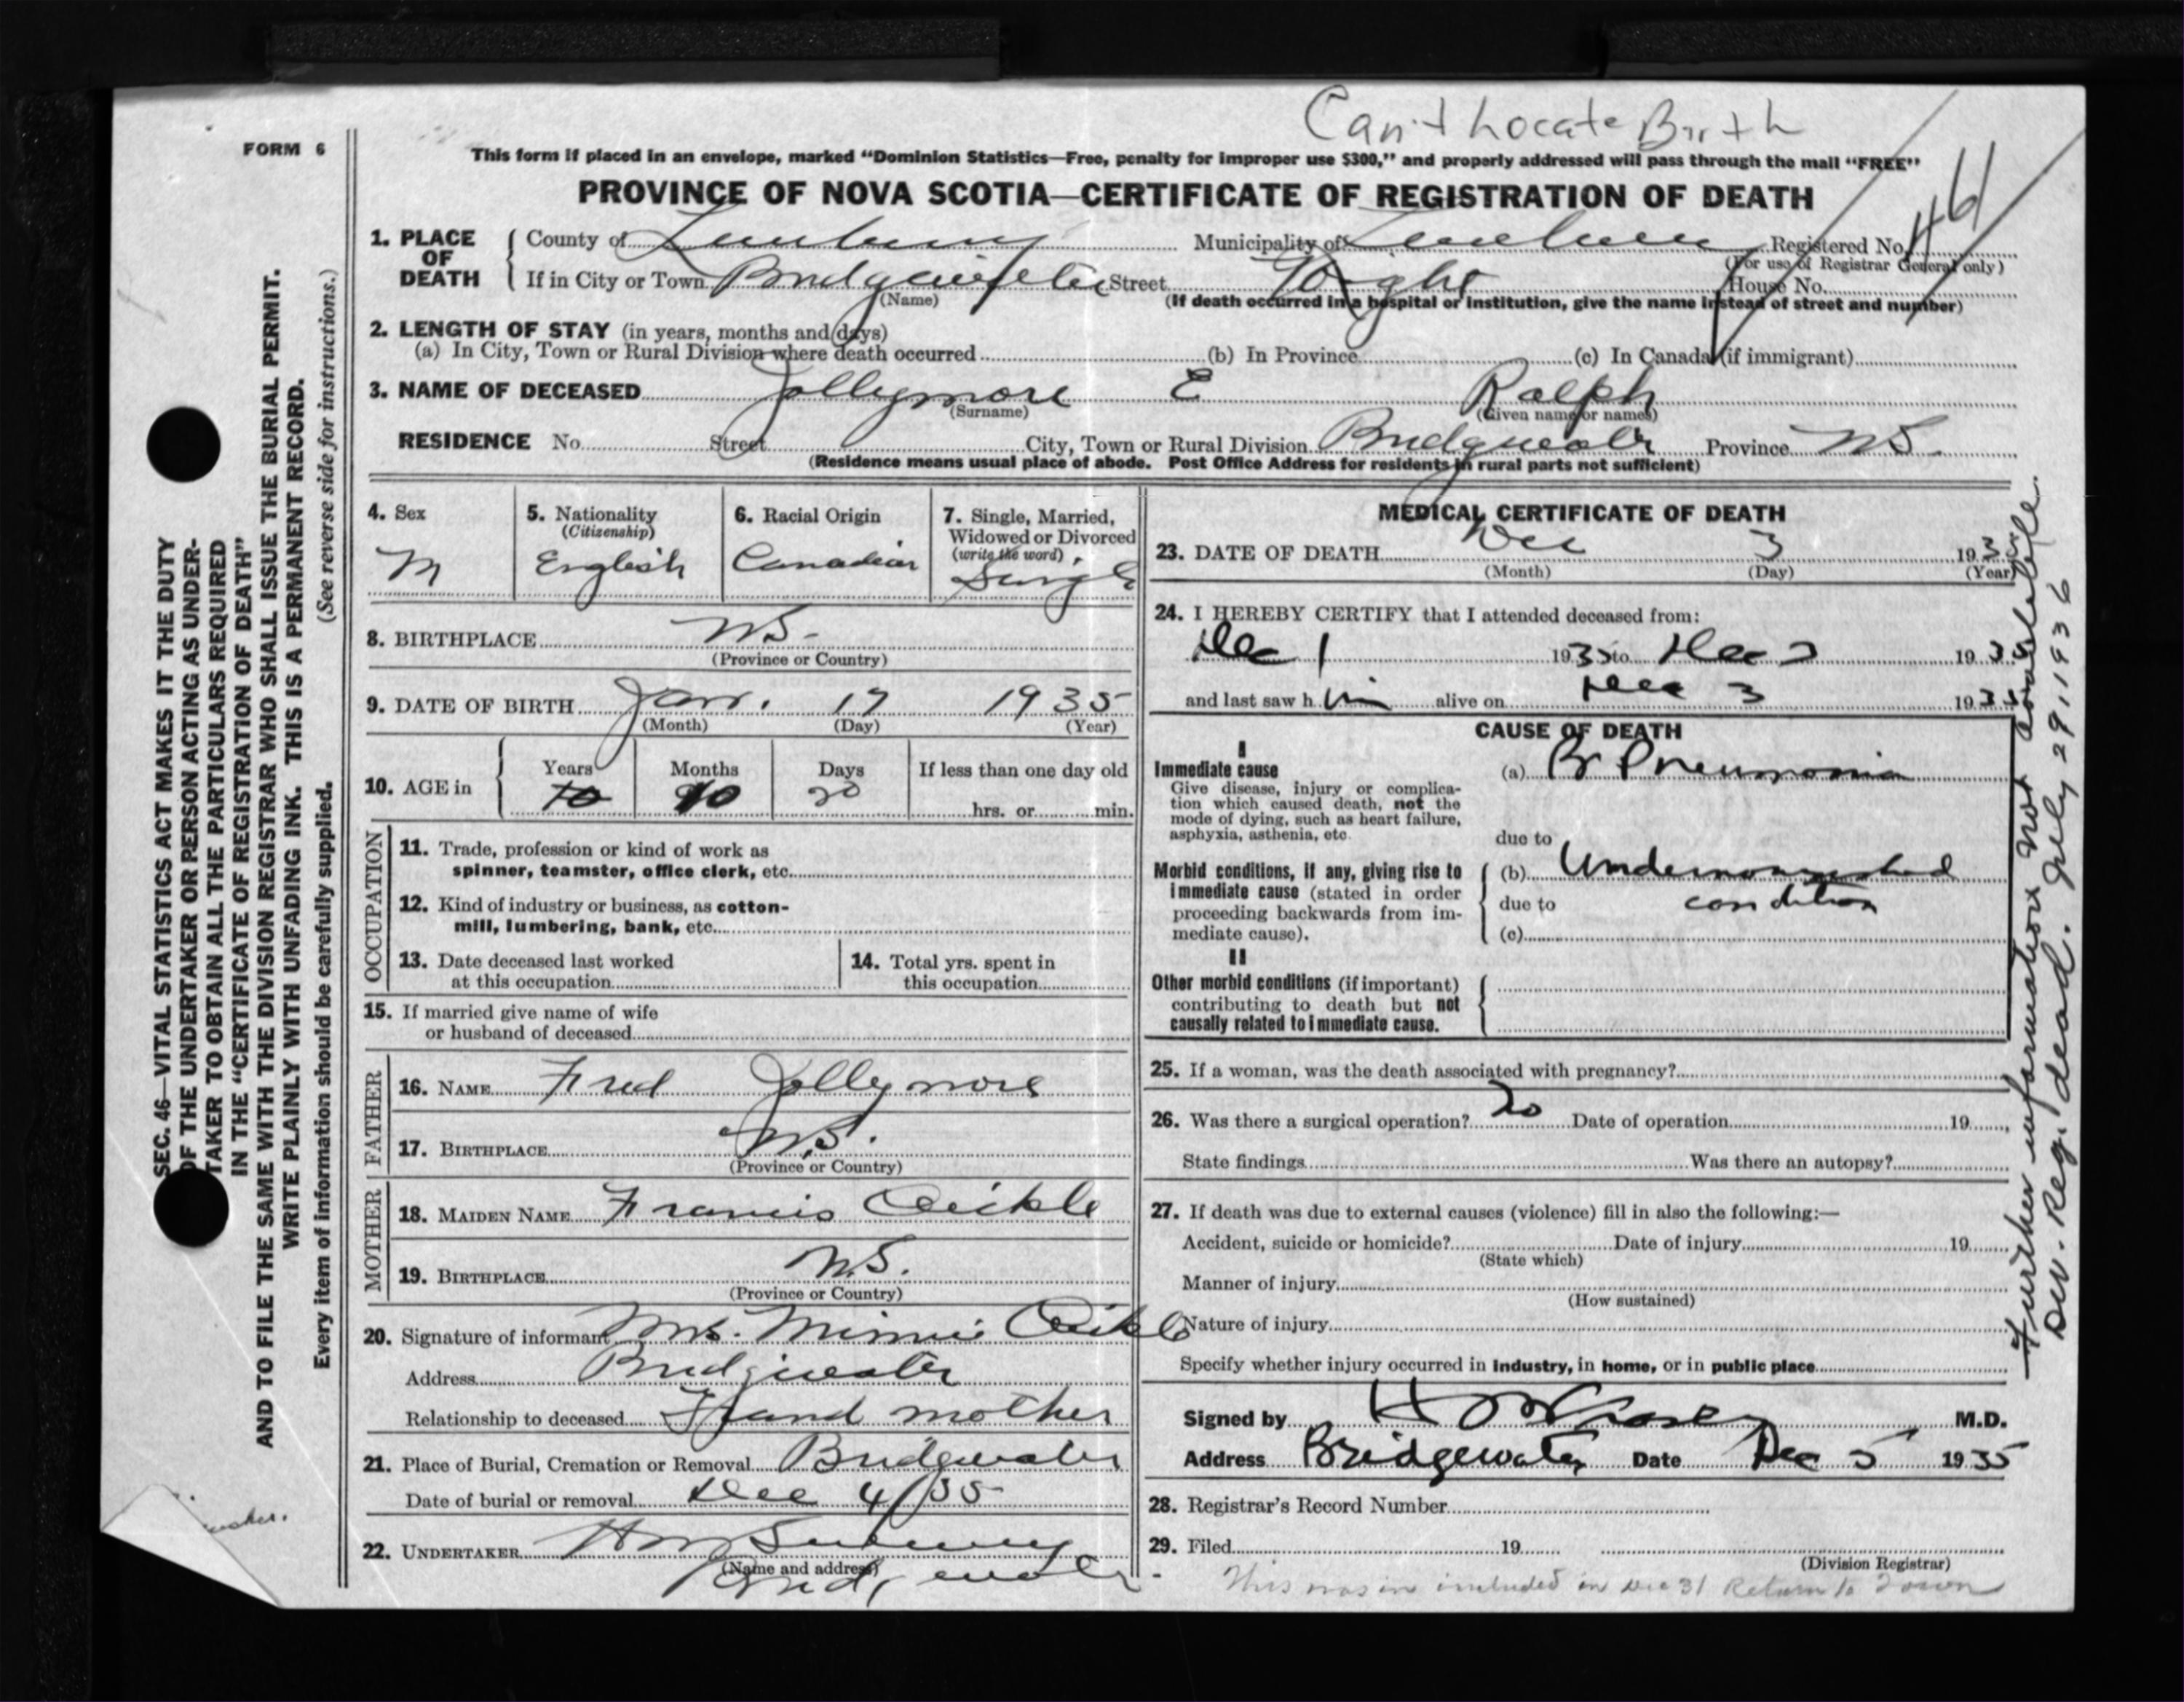 Can't Locate Birth
FORM 6
This form if placed in an envelope, marked "Dominion Statistics—Free, penalty for improper use $300," and properly addressed will pass through the mail "FREE"
PROVINCE OF NOVA SCOTIA—CERTIFICATE OF REGISTRATION OF DEATH
1. PLACE OF DEATH County of Lunenburg Municipality of Registered No.
(For use of Registrar General only)
If in City or Town Bridgewater Street House No.
(Name) (If death occurred in a hospital or institution, give the name instead of street and number)
2. LENGTH OF STAY (in years, months and days)
(a) In City, Town or Rural Division where death occurred (b) In Province (c) In Canada (if immigrant)
3. NAME OF DECEASED Jollymore E Ralph
(Surname) (Given name or names)
RESIDENCE No. Street City, Town or Rural Division Bridgewater Province N.S.
(Residence means usual place of abode. Post Office Address for residents in rural parts not sufficient)
4. Sex 5. Nationality 6. Racial Origin 7. Single, Married,
(Citizenship) Widowed or Divorced
(write the word)
M English Canadian Single
8. BIRTHPLACE N.S.
(Province or Country)
9. DATE OF BIRTH Jan. 17 1935
(Month) (Day) (Year)
10. AGE in Years Months Days If less than one day old
10 10 20 hrs. or min.
OCCUPATION
11. Trade, profession or kind of work as
spinner, teamster, office clerk, etc.
12. Kind of industry or business, as cotton-
mill, lumbering, bank, etc.
13. Date deceased last worked
at this occupation
14. Total yrs. spent in
this occupation
15. If married give name of wife
or husband of deceased
FATHER
16. NAME Fred Jollymore
17. BIRTHPLACE N.S.
(Province or Country)
MOTHER
18. MAIDEN NAME Francis
19. BIRTHPLACE N.S.
(Province or Country)
20. Signature of informant Mrs. Minnie
Address Bridgewater
Relationship to deceased Grand mother
21. Place of Burial, Cremation or Removal Bridgewater
Date of burial or removal Dec 4/35
22. UNDERTAKER
(Name and address)
Bridgewater
MEDICAL CERTIFICATE OF DEATH
23. DATE OF DEATH Dec 3 193
(Month) (Day) (Year)
24. I HEREBY CERTIFY that I attended deceased from:
Dec 1 1935 to Dec 3 1935
and last saw him alive on Dec 3 1935
CAUSE OF DEATH
I
Immediate cause (a) Br Pneumonia
Give disease, injury or complica-
tion which caused death, not the
mode of dying, such as heart failure,
asphyxia, asthenia, etc.
due to
Morbid conditions, if any, giving rise to
immediate cause (stated in order
proceeding backwards from im-
mediate cause).
(b) Undernourished
due to condition
(c)
II
Other morbid conditions (if important)
contributing to death but not
causally related to immediate cause.
25. If a woman, was the death associated with pregnancy?
26. Was there a surgical operation? No Date of operation 19
State findings Was there an autopsy?
27. If death was due to external causes (violence) fill in also the following:—
Accident, suicide or homicide? Date of injury 19
(State which)
Manner of injury
(How sustained)
Nature of injury
Specify whether injury occurred in industry, in home, or in public place
Signed by M.D.
Address Bridgewater Date Dec 5 1935
28. Registrar's Record Number
29. Filed 19
(Division Registrar)
This was in included in Dec 31 Return to Town
Further information not available.
Div. Reg. dead. July 29, 1936
SEC. 46—VITAL STATISTICS ACT MAKES IT THE DUTY
OF THE UNDERTAKER OR PERSON ACTING AS UNDER-
TAKER TO OBTAIN ALL THE PARTICULARS REQUIRED
IN THE "CERTIFICATE OF REGISTRATION OF DEATH"
AND TO FILE THE SAME WITH THE DIVISION REGISTRAR WHO SHALL ISSUE THE BURIAL PERMIT.
WRITE PLAINLY WITH UNFADING INK. THIS IS A PERMANENT RECORD.
Every item of information should be carefully supplied. (See reverse side for instructions.)